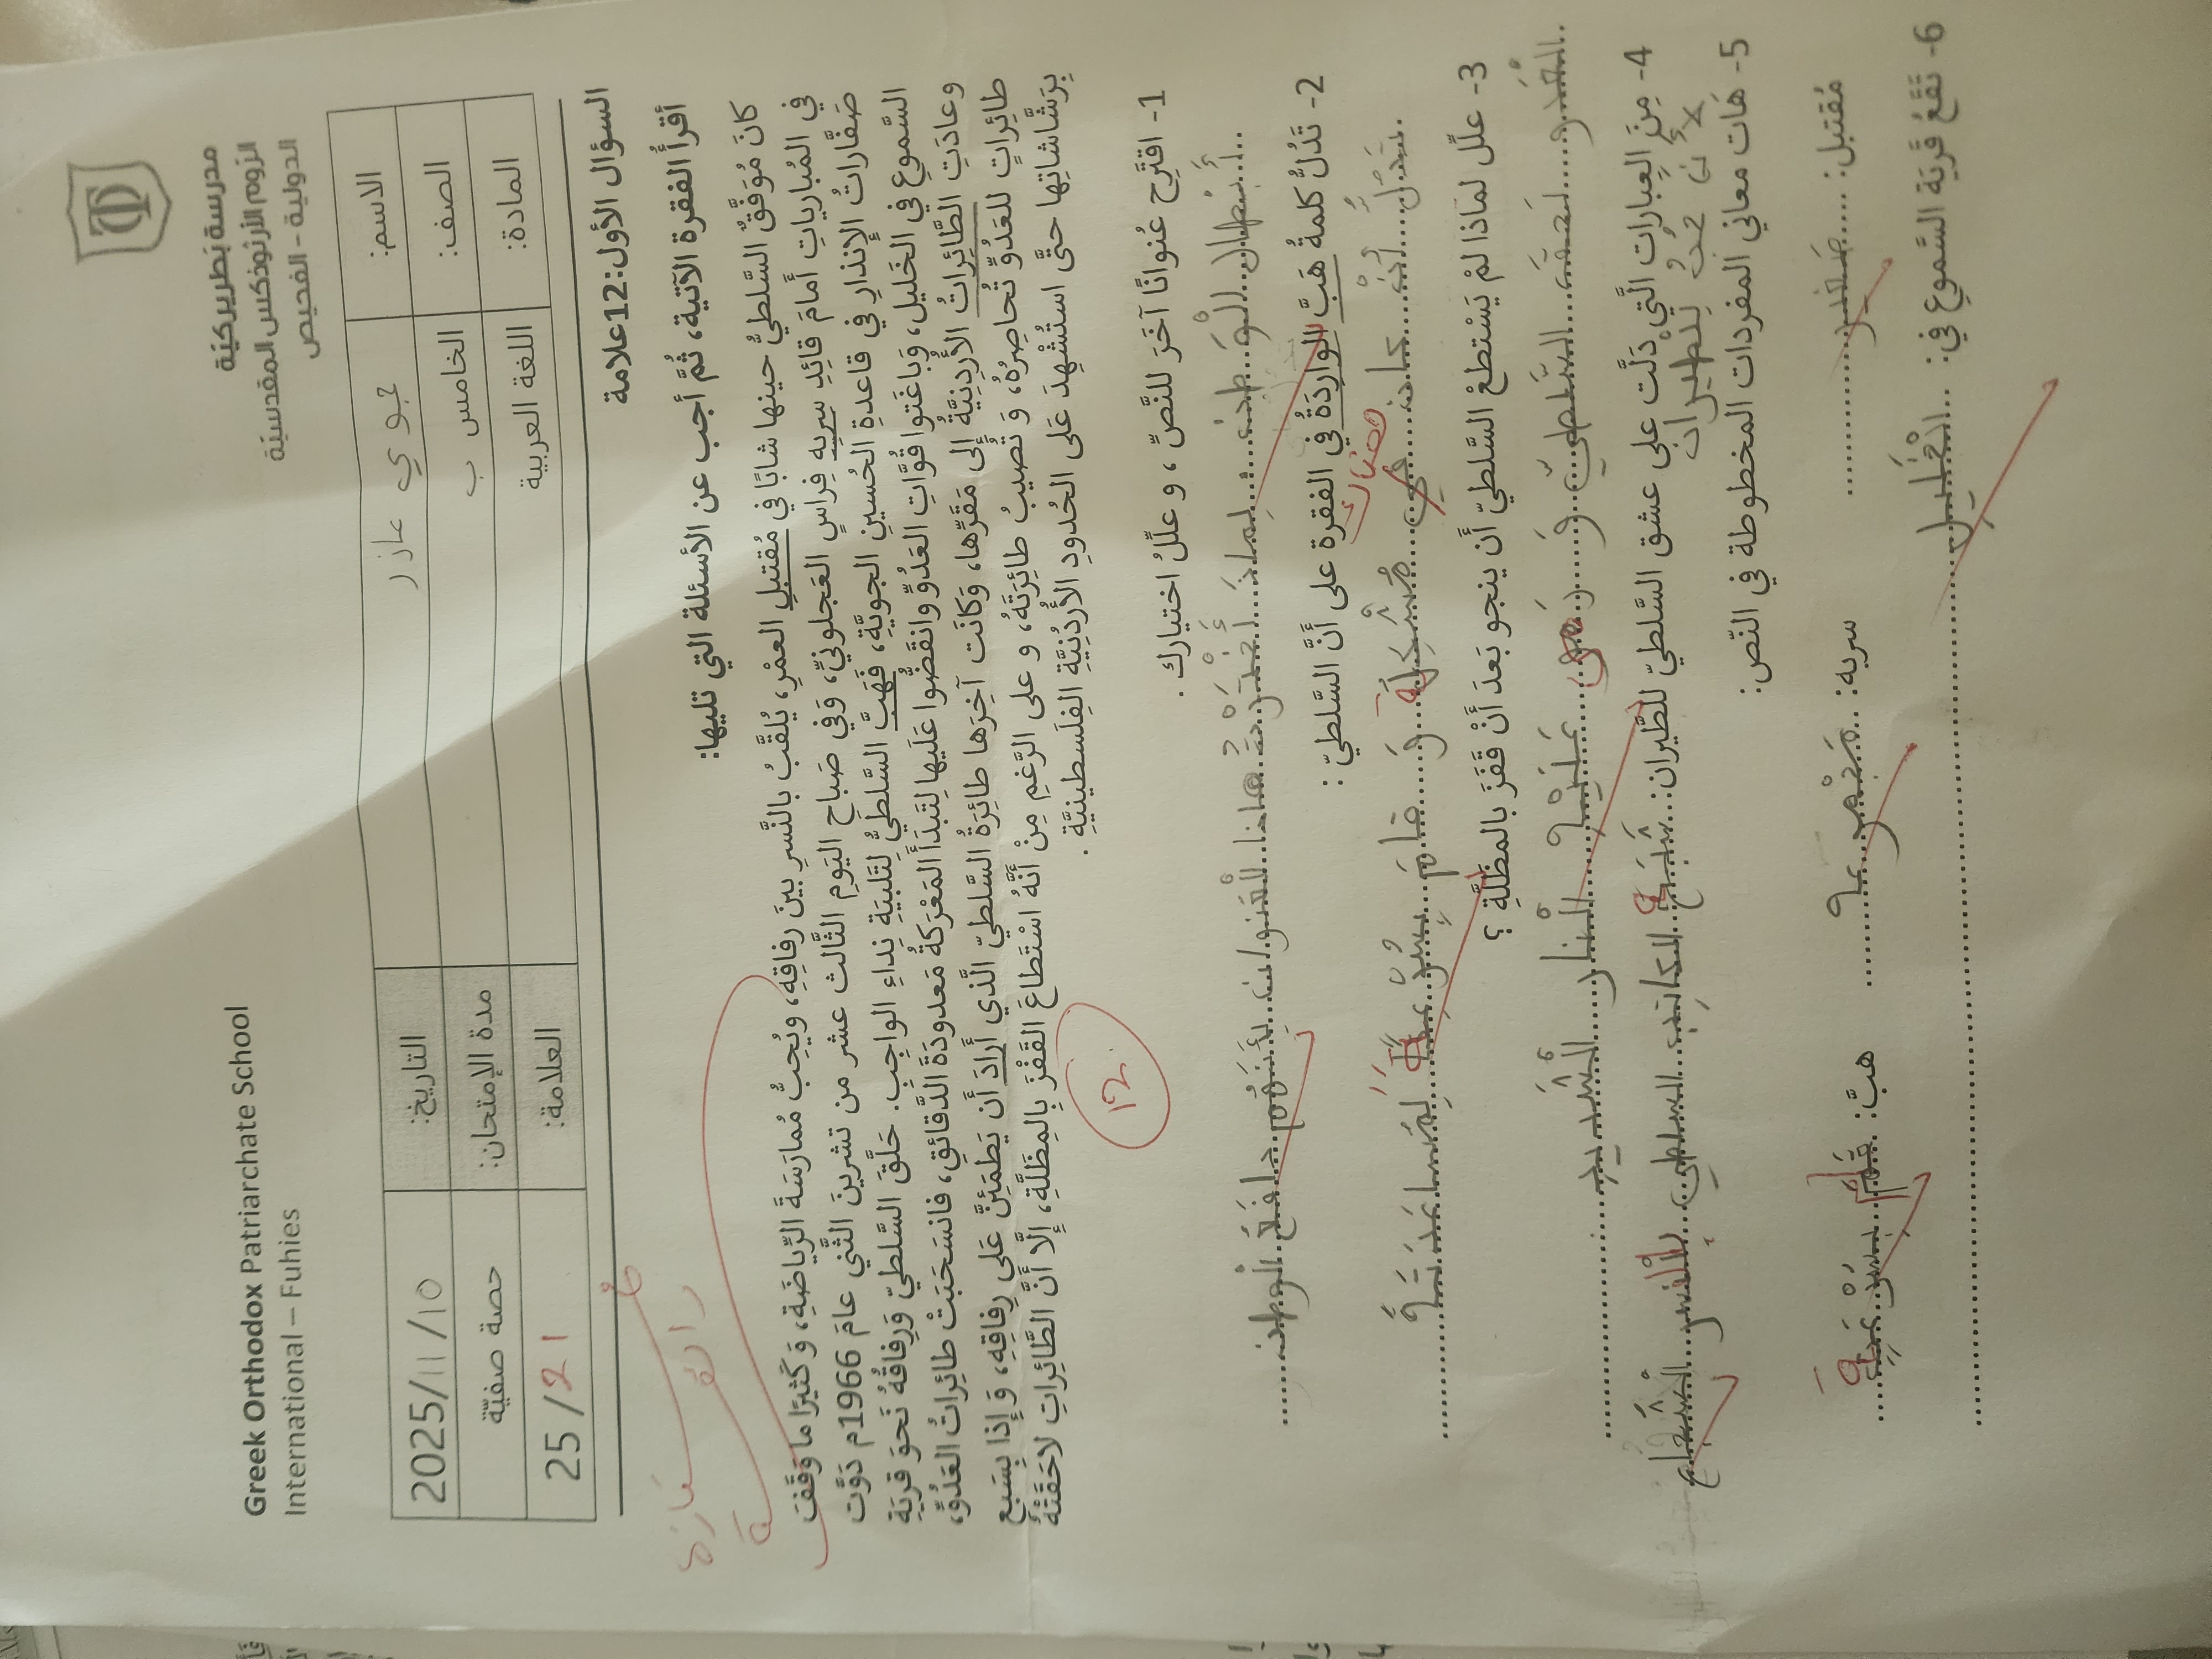 مدرسة بطريركية
الروم الأرثوذكس المقدسية
الدولية - الفحيص
Greek Orthodox Patriarchate School
International – Fuhies
الاسم: جوي عازر التاريخ: 2025/11/10
الصف: الخامس ب مدة الإمتحان: حصة صفيّة
المادة: اللغة العربية العلامة: 21/ 25
السؤال الأول:12علامة
أقرأ الفقرة الآتية، ثُمَّ أجب عن الأسئلة التي تليها:
كانَ مُوَفَّقٌ السَّلطيُّ حينها شابًا في مُقتبلِ العمْرِ، يُلقَّبُ بالنَّسرِ بينَ رفاقِهِ، ويُحِبُّ مُمارَسَةَ الرِّياضَةِ، وَكَثيرًا ما وَقَفَ
في المُبارياتِ أَمامَ قائِدِ سربِه فِراسٍ العَجلونيِّ، وَفي صَباحِ اليَومِ الثَّالث عشر من تشرينَ الثَّني عامَ 1966م دَوَّت
صَفَّاراتُ الإنذارِ في قاعدةِ الحُسينِ الجويَّةِ، فَهَبَّ السَّلطيُّ لِتَلبيَةِ نِداءِ الواجِبِ. حَلَّقَ السَّلطيّ وَرِفاقُهُ نَحوَ قريَةِ
السَّموعِ في الخَليلِ، وَباغَتوا قُوَّاتِ العَدُوِّ وانقَضُّوا عَلَيها لِتَبدَأَ المَعْرَكةُ مَعدودَةَ الدَّقائقِ، فانسَحَبَتْ طائِراتُ العَدُوِّ،
وعادَتِ الطَّائِراتُ الأُردِنيَّةُ إلى مَقَرِّها، وَكانَت آخِرَها طائِرَةُ السَّلطيّ الَّذي أَرادَ أَن يَطمَئِنَّ عَلى رِفاقِهِ، وَإِذا بِسَبعِ
طائِراتٍ للعَدُوِّ تُحاصِرُهُ، وَ تُصيبُ طائِرَتَهُ، و على الرَّغمِ مِنْ أَنَّهُ اسْتَطاعَ القَفْزَ بِالمِظَلَّةِ، إلَّا أَنَّ الطَّائِراتِ لاحَقَتْهُ
بِرَشَّاشاتِها حتَّى استُشْهِدَ عَلى الحُدودِ الأُردُنِيَّةِ الفِلَسطينيَّةِ.
رائع
12
1- اقتَرِح عُنوانًا آخَرَ للنَّصِّ ، و علِّلُ اختيارك .
أَبْطال الْوَطن لماذا أَخْتَرْتُ هاذا الْعنوان لِأَنَّهُم دافَعُ الْوطن
2- تَدُلُّ كلمةُ هَبَّ الوارِدَةُ في الفقرة على أنَّ السَّلطيّ :
تَدُلُ أن كان هناك مُشْكِلة و قامَ بِسُرْعة لِمُساعَدَتة
3- علّل لماذا لمْ يَسْتطعْ السَّلطيّ أَن ينجو بَعدَ أَنْ قَفَزَ بالمظلَّةِ ؟
الْعَدو لَحِقَ السَّلطيّ و رَمى عَلَيْهِ الْنار الْشَديد
4- مِنَ العِبارات الَّتي دَلَّت على عشق السَّلطيّ للطَّيران: شَبَهَ الكاتِب السلطي بِالْنسر الْشُجاع
لِأَن حُبُ لِلْطيران
5- هَات معاني المفردات المخطوطة في النّص:
مُقتبل: صَغير سربه: مَجْموعة هبَّ: قامَ بِسُرْعَةِ
6- تَقَعُ قَريَة السَّموعِ في: الْخَليل